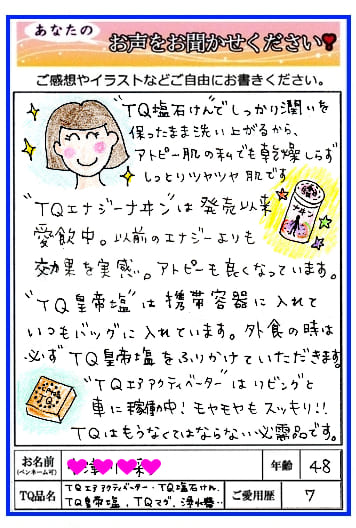 あなたの
お声をお聞かせください
ご感想やイラストなどご自由にお書きください。
"TQ塩石けん"でしっかり潤いを
保ったまま洗い上がるから、
アトピー肌の私でも乾燥しらず
しっとりツヤツヤ肌です
"TQエナジーナヰン"は発売以来
愛飲中。以前のエナジーよりも
効果を実感。アトピーも良くなっています。
"TQ皇帝塩"は携帯容器に入れて
いつもバッグに入れています。外食の時は
必ずTQ皇帝塩をふりかけていただきます。
"TQエアアクティベーター"はリビングと
車に稼働中!モヤモヤもスッキリ!!
TQはもうなくてはならない必需品です。
お名前
(ペンネーム可)
年齢
48
TQ品名
TQエアアクティベーター・TQ塩石けん
TQ皇帝塩、TQマグ、浄水器…
ご愛用歴
7